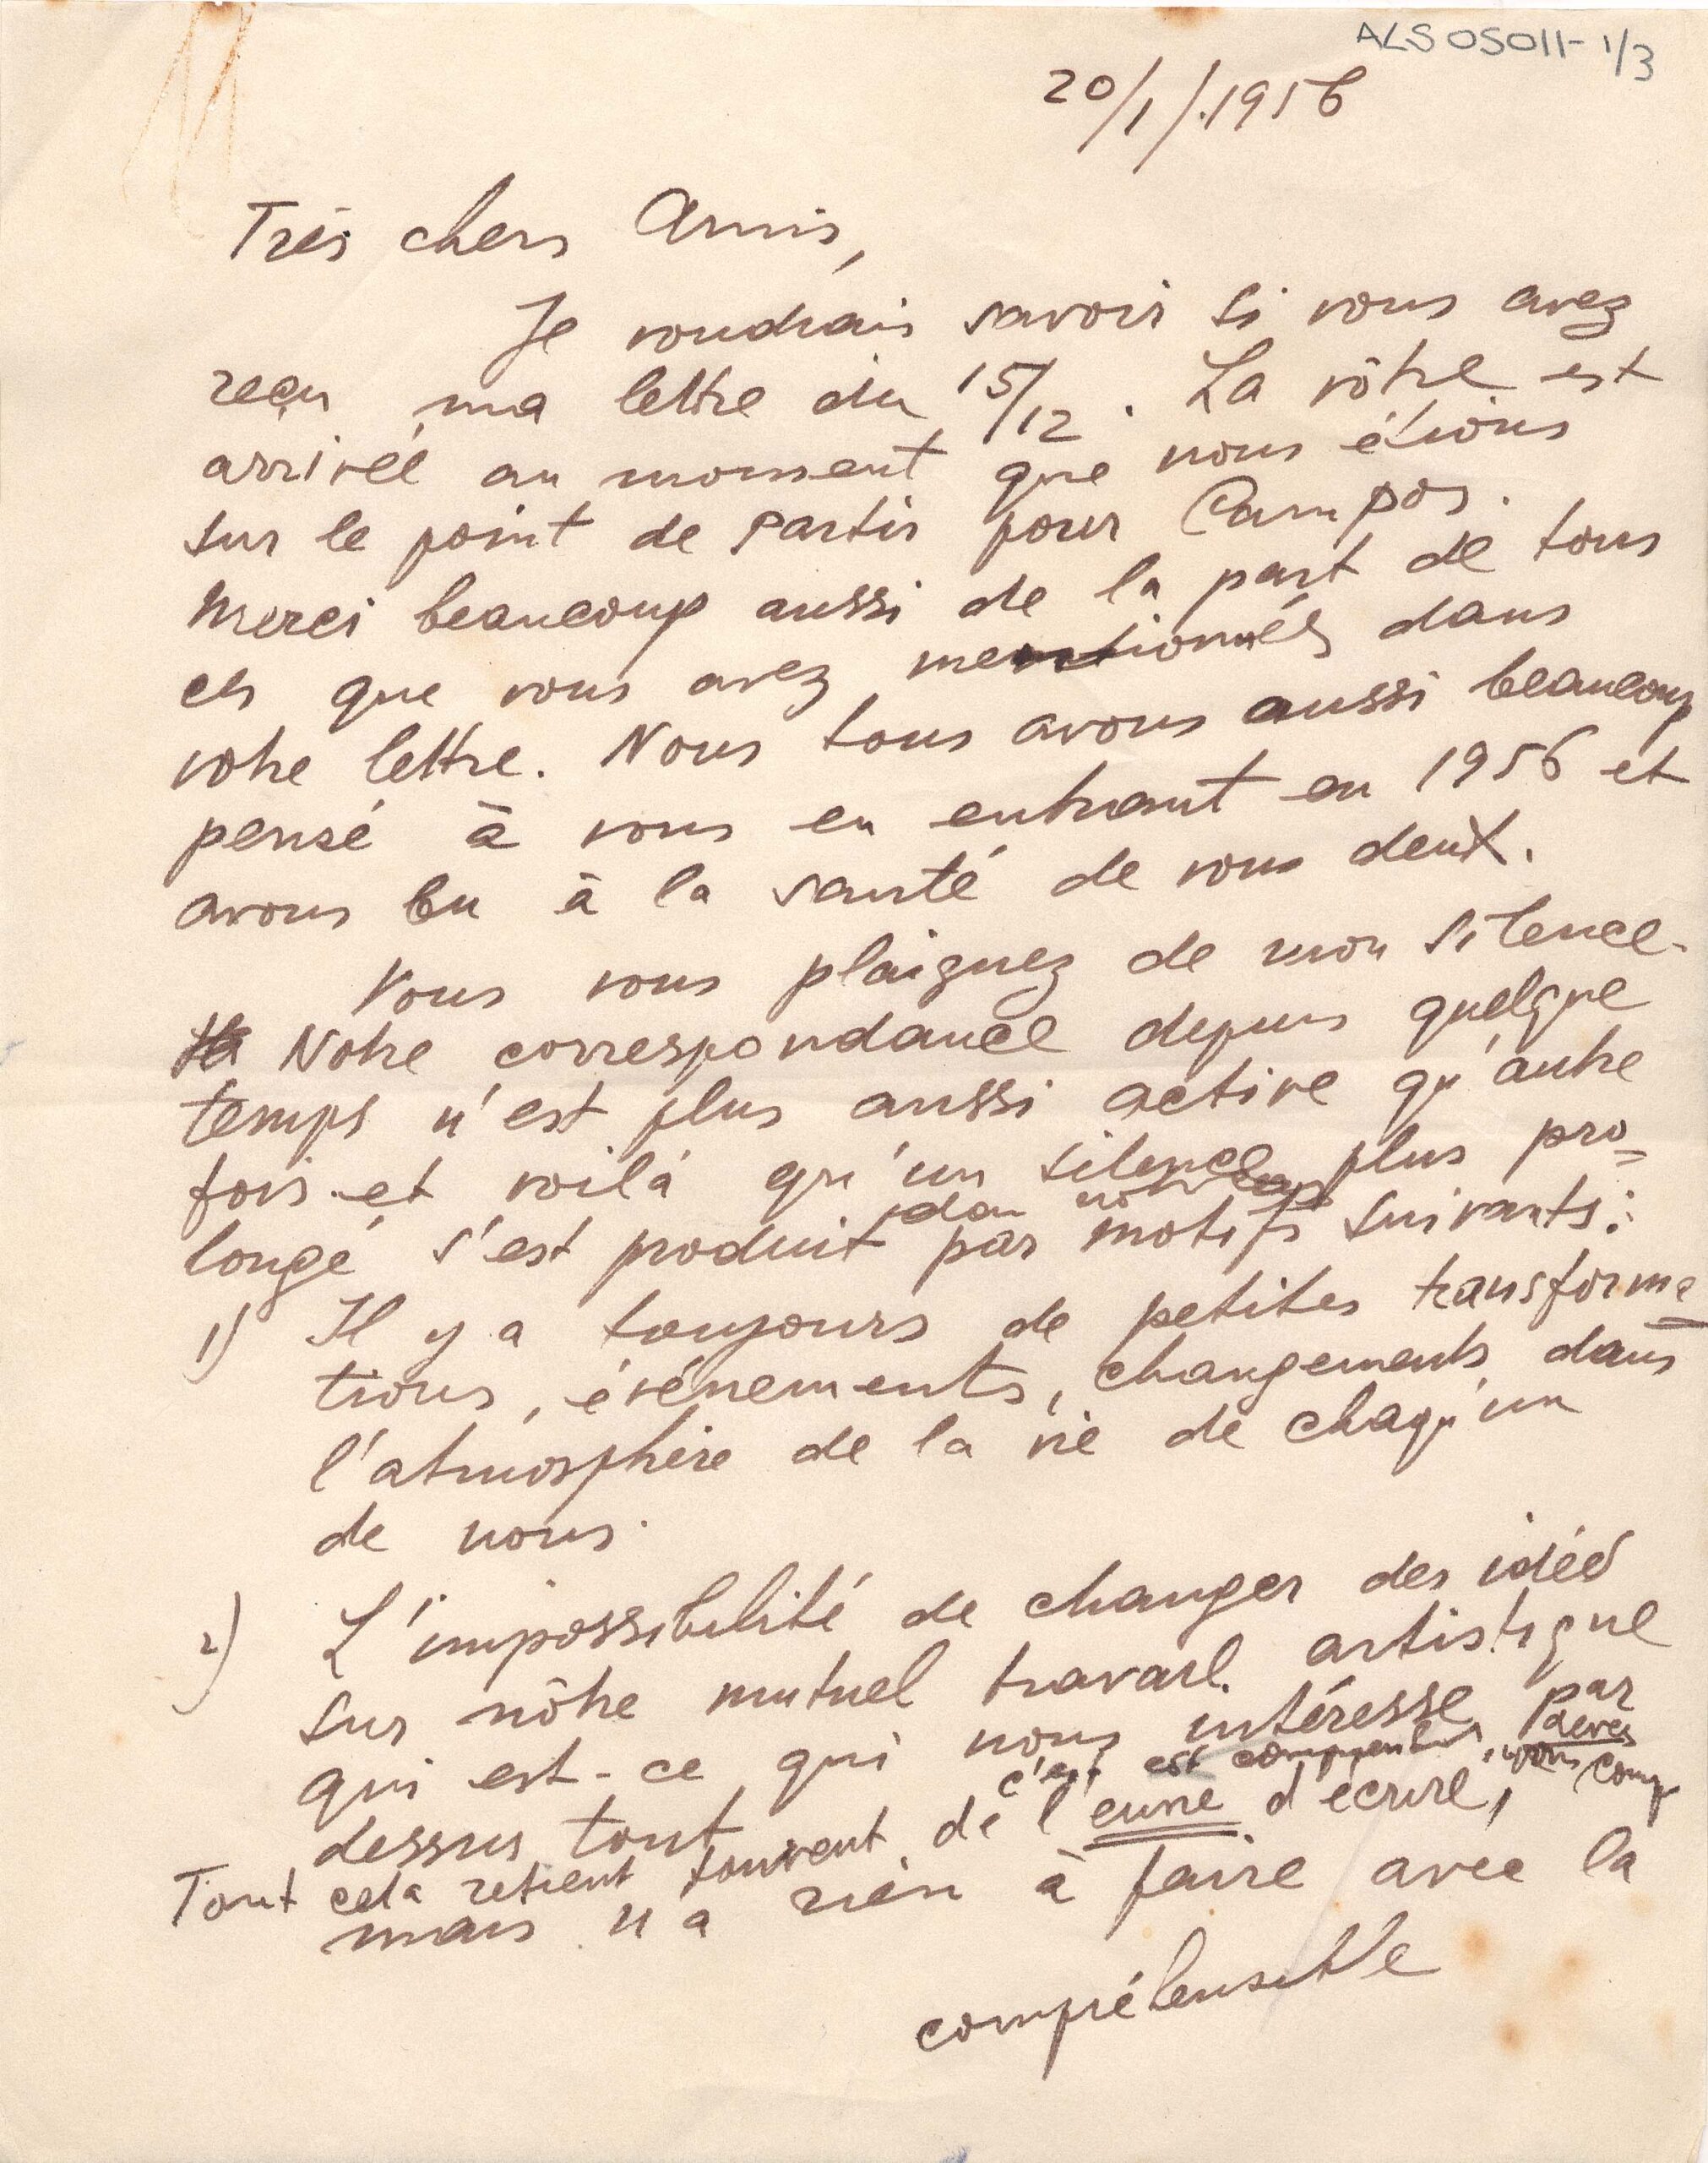 ALS 05011-1/3
20/1/.1956
Très chers Amis,
Je voudrais savoir si vous avez
reçu ma lettre du 15/12. La vôtre est
arrivée au moment que nous étions
sur le point de partir pour Campos.
Merci beaucoup aussi de la part de tous
ces que vous avez mentionnés dans
votre lettre. Nous tous avons aussi beaucoup
pensé à vous en entrant en 1956 et
avons bu à la santé de vous deux.
Vous vous plaignez de mon silence.
Notre correspondance depuis quelque
temps n'est plus aussi active qu'autre
fois et voilà qu'un silence plus pro=
longé s'est produit par motifs suivants:
1) Il y a toujours de petites transforma
tions, événements, changements dans
l'atmosphère de la vie de chaqu'un
de nous.
2) L'impossibilité de changer des idées
sur nôtre mutuel travail artistique
qui est-ce qui nous intéresse par
dessus tout
c'est est vous devez comp
Tout cela retient souvent de l'eune d'écrire,
mais n'a rien à faire avec la
compréhensible